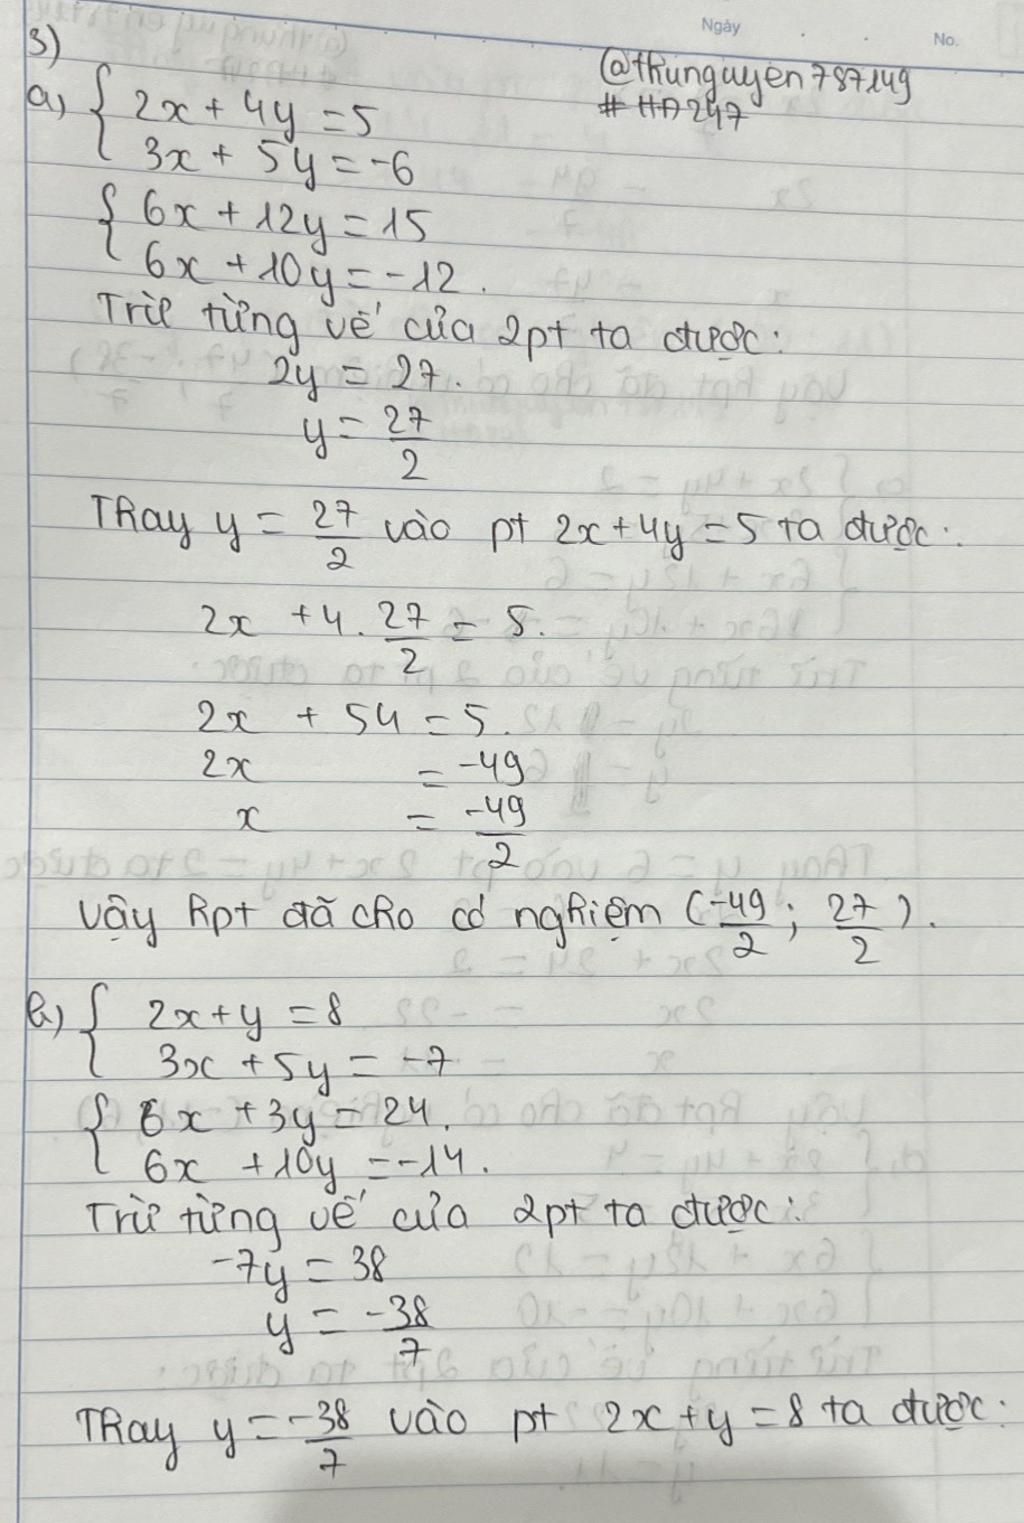 Ngày
No.
3)
@thunguyen787149
# HA247
a, { 2x + 4y = 5
3x + 5y = -6
{ 6x + 12y = 15
6x + 10y = -12.
Trừ từng vế của 2pt ta được:
2y = 27.
y = 27/2
Thay y = 27/2 vào pt 2x + 4y = 5 ta được:
2x + 4. 27/2 = 5.
2x + 54 = 5.
2x = -49
x = -49/2
Vậy hpt đã cho có nghiệm (-49/2; 27/2).
b, { 2x + y = 8
3x + 5y = -7
{ 6x + 3y = 24.
6x + 10y = -14.
Trừ từng vế của 2pt ta được:
-7y = 38
y = -38/7
Thay y = -38/7 vào pt 2x + y = 8 ta được: